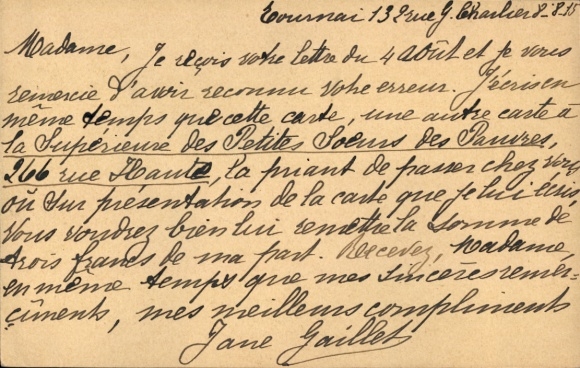 Tournai 13 rue G. Charlier 8-8-15
Madame, Je reçois votre lettre du 4 août et je vous
remercie d'avoir reconnu votre erreur. J'écris en
même temps que cette carte, une autre carte à
la Supérieure des Petites Soeurs des Pauvres,
266 rue Haute, la priant de passer chez vous
où sur présentation de la carte que je lui écris
Vous voudrez bien lui remettre la somme de
trois francs de ma part. Recevez, Madame,
en même temps que mes sincères remer-
cîments, mes meilleurs compliments
Jane Gaillet